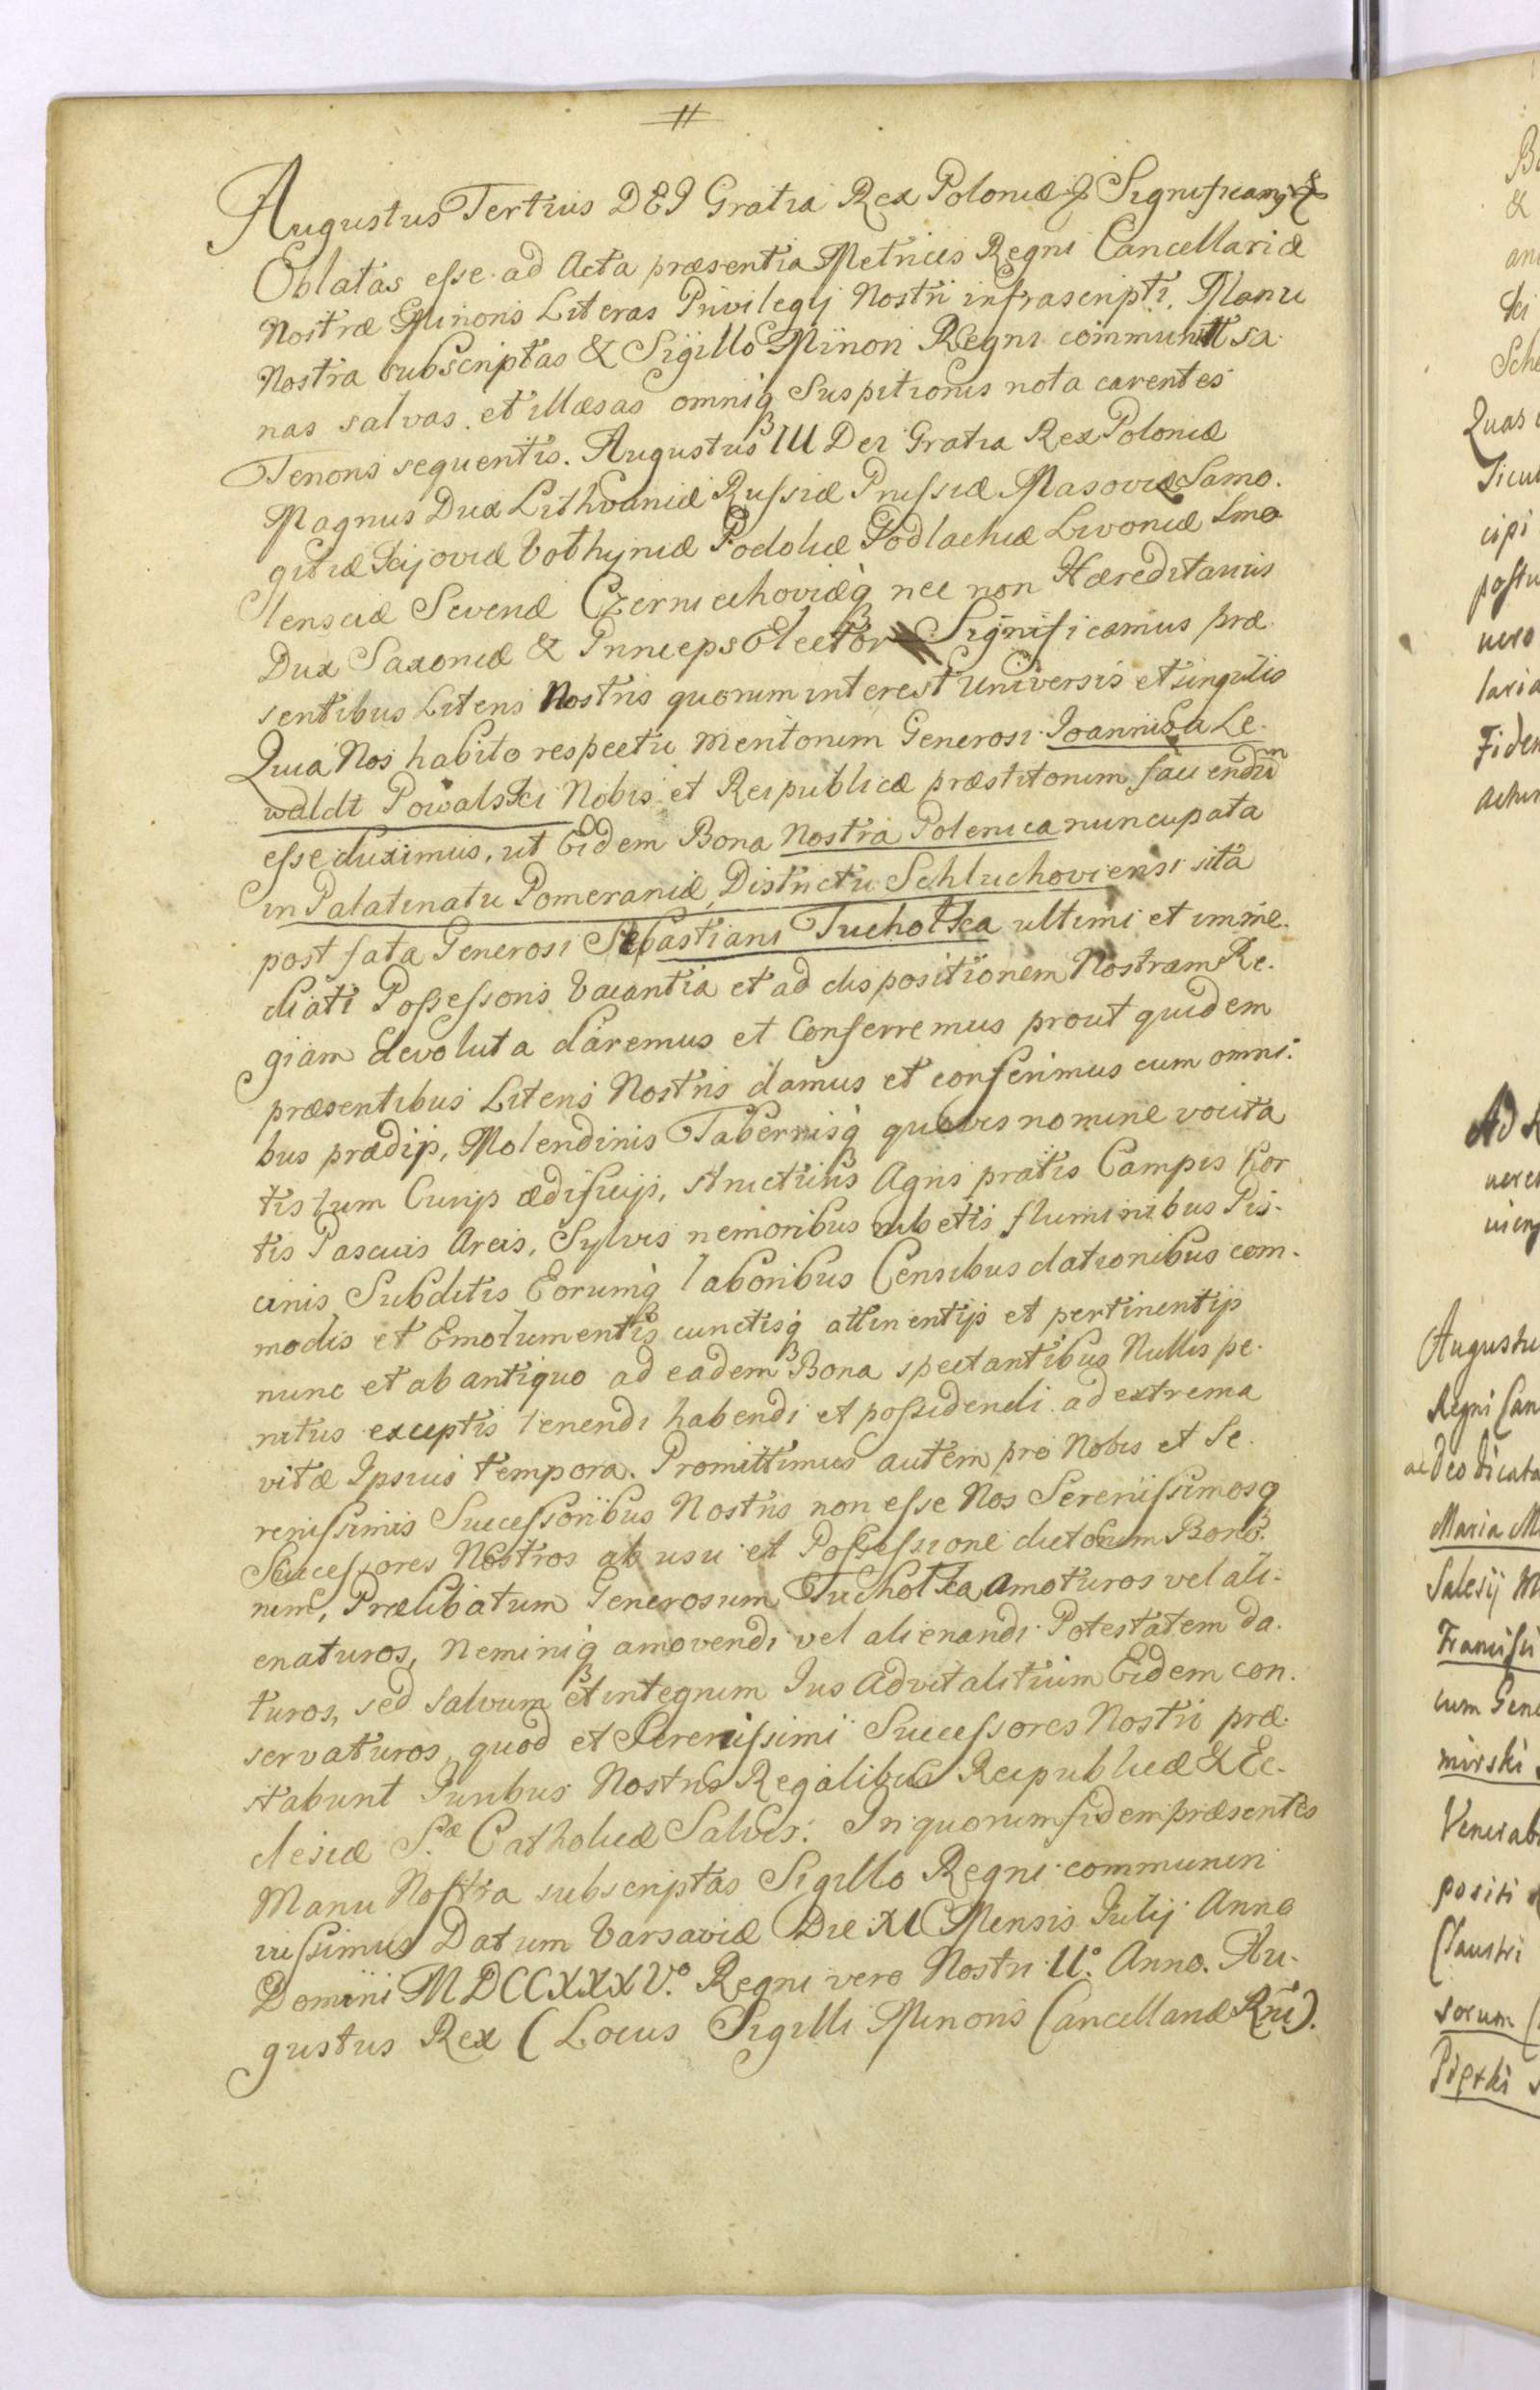 #
Augustus Tertius DEI Gratia Rex Poloniæ & Significamg &
Oblatas esse ad Acta præsentia Metrices Regni Cancellariæ
Nostræ Minoris Literas Privilegij Nostri infrascripti. Manu
Nostra subscriptas & Sigillo Minori Regni communitt sa
nas salvas et illæsas omniq Suspitionis nota carentes
Tenoris sequentis. Augustus III Dei Gratia Rex Poloniæ
Magnus Dux Lithvaniæ Russiæ Prussiæ Masoviæ Samo.
gitiæ Kijoviæ Volhyniæ Podoliæ Podlachiæ Livoniæ Smo
lensciæ Severiæ Czerniechoviæq nec non Hæreditarius
Dux Saxoniæ & Princeps Elector Significamus præ
sentibus Literis Nostris quorum interest Universis et singulis
Quia Nos habito respectu meritorum Generosi Joannis a Le.
waldt Powalski Nobis et Reipublicæ præstitorum faciendũm
esse duximus, ut Eidem Bona Nostra Polenica nuncupata
in Palatinatu Pomeraniæ, Districtu Schluchoviensi sita
post fata Generosi Sebastiani Tucholka ultimi et imme.
diati Possessoris Vacantia et ad dispositionem Nostram Re.
giam devoluta daremus et Conferremus prout quidem
præsentibus Literis Nostris damus et conferimus cum omni.
bus prædijs, Molendinis Tabernisq quovis nomine vocita
tis tum Curijs ædificijs, structuris Agris pratis Campis hor
tis Pascuis Areis, Sylvis nemoribus rubetis fluminibus Pis.
cinis Subditis Eorumq laboribus Censibus dationibus com.
modis et Emolumentis cunctisq attinentijs et pertinentijs
nunc et ab antiquo ad eadem Bona spectantibus Nullis pe.
nitus exceptis tenendi habendi et possidendi ad extrema
vitæ Ipsius tempora. Promittimus autem pro Nobis et Se.
renissimis Successoribus Nostris non esse Nos Serenissimosq
Successores Nostros ab usu et Possessione dictorum Bono.
rum, Prælibatum Generosum Tucholka amoturos vel ali.
enaturos, Neminiq amovendi vel alienandi Potestatem da.
turos, sed salvum et integrum Jus Advitalitium Eidem con.
servaturos, quod et Serenissimi Successores Nostri præ.
stabunt Juribus Nostris Regalibus Reipublicæ & Ec.
clesiæ S.æ Catholicæ Salvis. In quorum fidem præsentes
Manu Nostra subscriptas Sigillo Regni communiri
iussimus Datum Varsaviæ Die XI Mensis Julij Anno
Domini MDCCXXXV.o Regni vero Nostri II.o Anno. Au.
gustus Rex (Locus Sigilli Minoris Cancellariæ Rni).